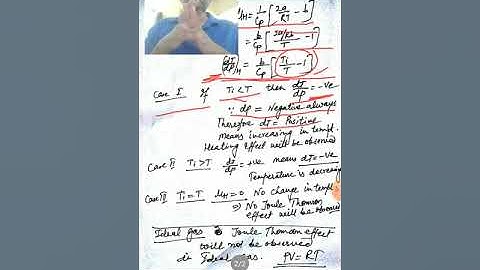 μH = 1/Cp [2a/RT - b]
= b/Cp [2a/Rb/T - 1]
(dT/dP)H = b/Cp [Ti/T - 1]
Case I If Ti < T then dT/dP = -Ve
∵ dp = Negative always
Therefore dT = Positive
Means increasing in temp.
Heating Effect will be observed
Case II Ti > T dT/dP = +ve means dT = -Ve
Temperature is decreasing
Case III Ti = T μH = 0 No change in temp
⇒ No Joule Thomson
effect will be observed
Ideal gas Joule Thomson effect
will not be observed
in Ideal gas. PV = RT
2/2